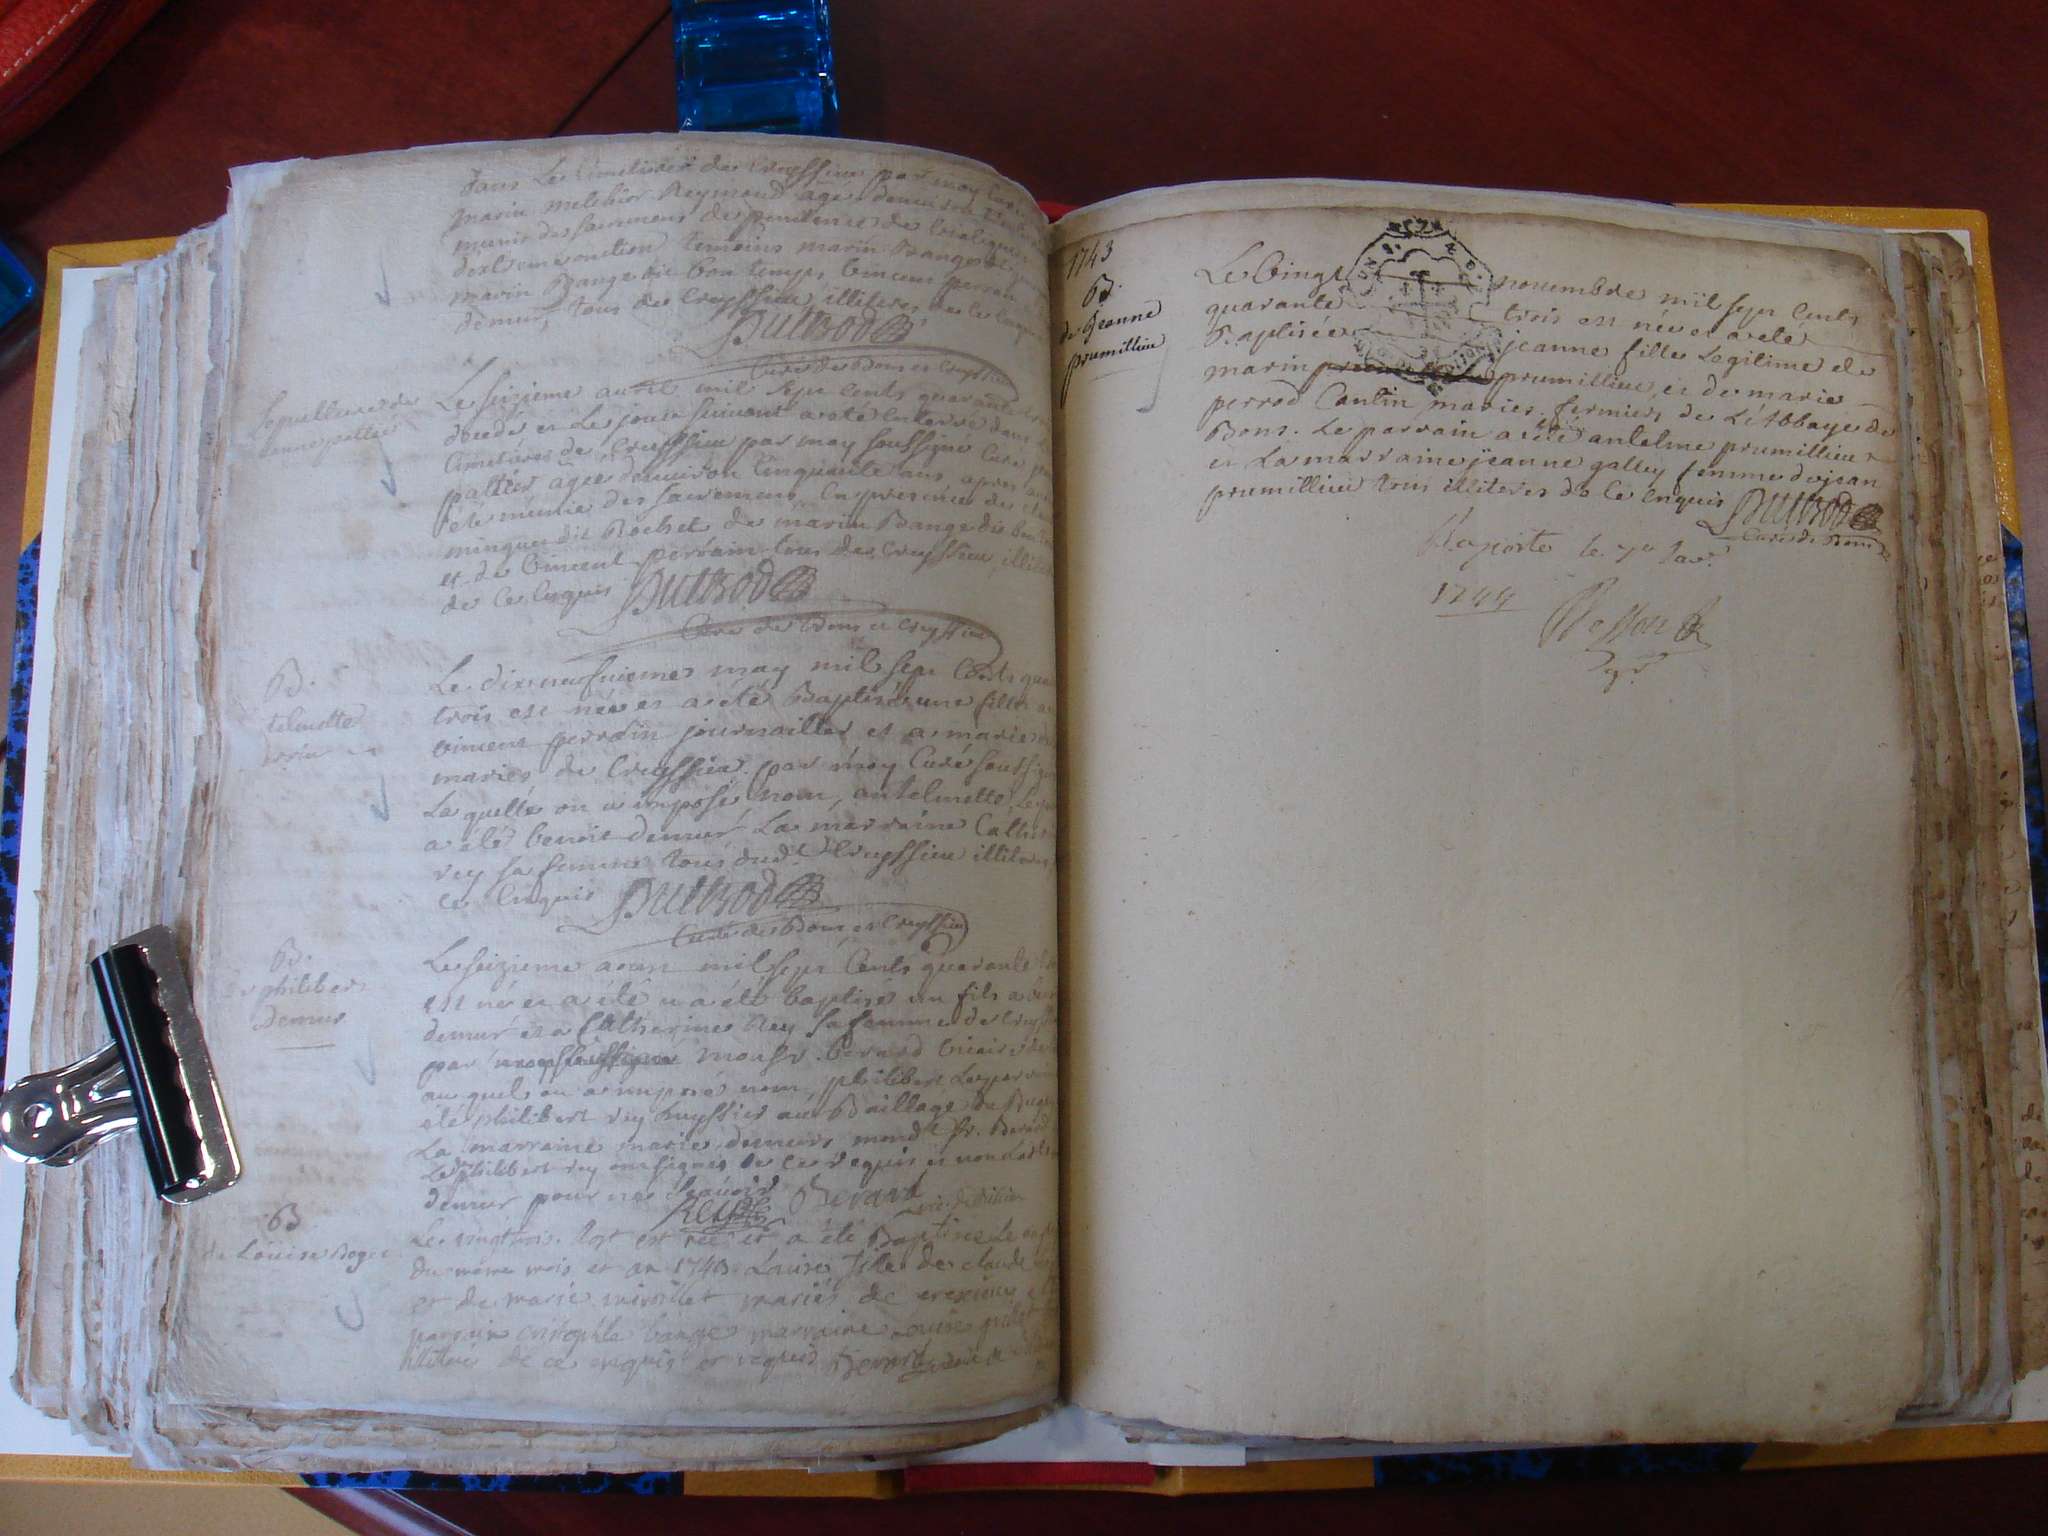 dans Le Cimetiere de Creyssieu par moy Curé
marin melchior Reymond agé denviron
munis des sacremens de penitence de
d'extreme onction temoins marin Bange
marin Bange dit bon temps, Vincent perrain
demur, tous de Creyssieu, illiteres de ce enquis
Dutrod
Curé de Bons et Creyssieu
Sepulture de
anne pattier
Le seizieme avril mil sept cents quarante trois
decedée et Le jour suivant a eté Enterré dans
Cimetiere de Creyssieu par moy soussigné Curé
pattier agée denviron Cinquante ans, apres avoir
été munie des sacremens, En presence de
minguet dit Rochet de marin Bange dit bon
et de Vincent perrain tous de Creyssieu, illiteres
de Ce Enquis Dutrod
Curé de Bons et Creyssieu
B.
telmette
errin
Le dixneufvieme may mil sept Cents
trois est née et a eté Baptisée une fille a
vincent perrain journaillier et a marie
mariés de Creyssieu par moy Curé soussigné
La quelle on a imposé nom, antelmette, Le
a eté benoit demur La marraine Catherine
rey sa femme tous dud. Creyssieu illiteres
Ce Enquis Dutrod
Curé de Bons et Creyssieu
B.
de philibert
Demur
Le seizieme aoust mil sept Cents quarante
est né et a été u a été baptisé un fils a
demur et a Catherine Rey sa femme de
par moy soussigné mousr. berard vicaire
au quel on a imposé nom, philibert Le parrain
eté philibert rey huyssier au Baillage du Bugey
La marraine marie demurs mond. sr. Berard
Le philibert rey ont signés de ce requis et non La
demur pour ne sçavoir Berard
Rey vic. de
B
de Louise Roger
Le vingtrois. Aost est née et a été Baptisée Le
du même mois et an 1743 Louise fille de claude
et de marie miroillet mariés de creysieu
parrain cristophle bange marraine Louise
illitérés de ce enquis et requis Berard
1743
B.
de Jeanne
prumillieu
Le Vingt novembre mil sept Cents
quarante trois est née et a eté
Baptisée jeanne fille Legitime de
marin prumillieu et de marie
perrod Cantin mariés fermiers de L'Abbaye de
Bons. Le parrain a eté antelme prumillieu
et La marraine jeanne galley femme de jean
prumillieu tous illiteres de Ce Enquis Dutrod
Curé de Bons
Raporté le 7e Janr.
1744